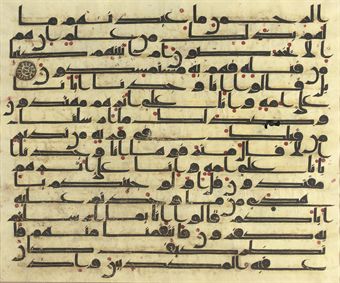 الرحمن ما عبدنهم ما
لهم بذلك من علم ان هم
الا يخرصون ام اتينهم كتبا
من قبله فهم به مستمسكون
بل قالوا انا وجدنا ابانا
على امة وانا على اثرهم مهتدون
وكذلك ما ارسلنا
من قبلك في قرية من نذير
الا قال مترفوها انا وجدنا
ابانا على امة وانا على اثرهم
مقتدون قل اولو جئتكم
باهدى مما وجدتم عليه
اباكم قالوا انا بما ارسلتم
به كفرون فانتقمنا منهم
فانظر كيف كان
عقبة المكذبين واذ